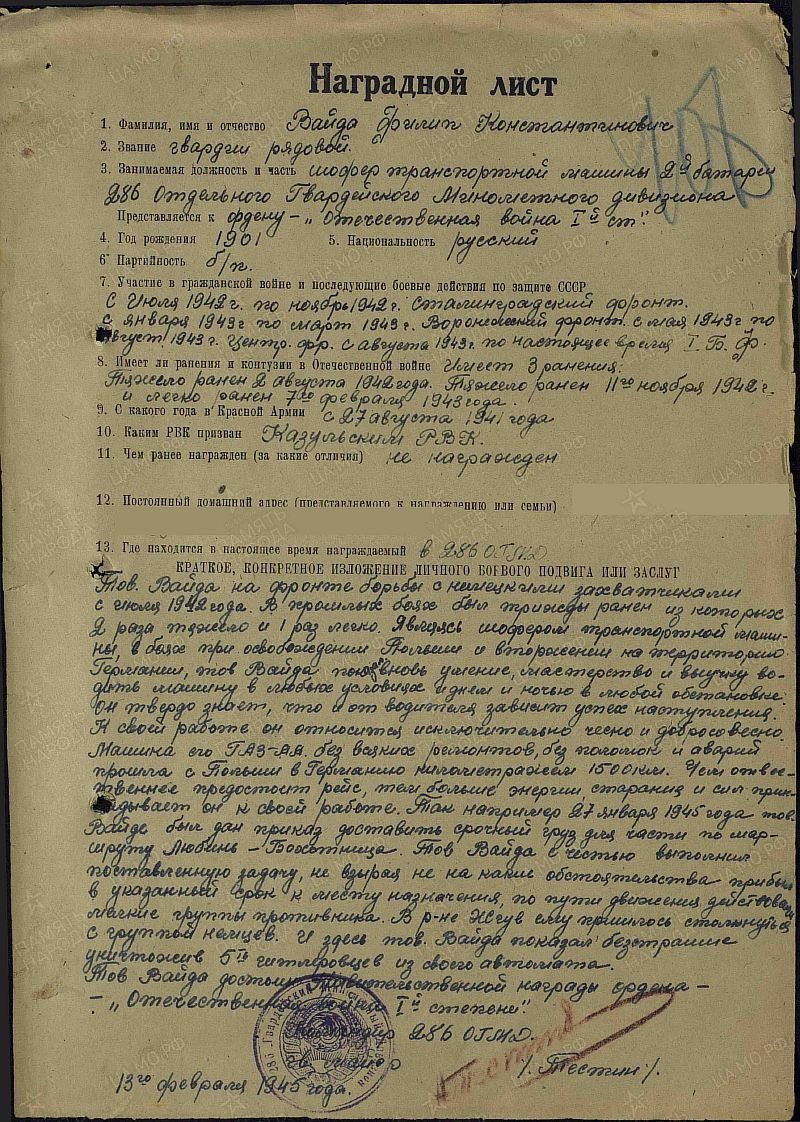 Наградной лист
1. Фамилия, имя и отчество Вайда Филип Константинович
2. Звание гвардии рядовой.
3. Занимаемая должность и часть шофер транспортной машины 2й батареи
286 Отдельного Гвардейского Минометного дивизиона
Представляется к ордену – „Отечественная война I й ст."
4. Год рождения 1901 5. Национальность русский
6. Партийность б/п.
7. Участие в гражданской войне и последующие боевые действия по защите СССР
С Июля 1942 г. по ноябрь 1942 г. Сталинградский фронт.
с января 1943 г по март 1943 г. Воронежский фронт. с мая 1943 г по
август 1943 г. Центр. фр. с августа 1943 г. по настоящее время I. Б. Ф.
8. Имеет ли ранения и контузии в Отечественной войне Имеет 3 ранения:
Тяжело ранен 2 августа 1942 года. Тяжело ранен 11го ноября 1942 г.
и легко ранен 7го февраля 1943 года.
9. С какого года в Красной Армии с 27 августа 1941 года
10. Каким РВК призван Казульским РВК.
11. Чем ранее награжден (за какие отличия) не награжден
12. Постоянный домашний адрес (представляемого к награждению или семьи)
13. Где находится в настоящее время награждаемый в 286 ОГМД
КРАТКОЕ, КОНКРЕТНОЕ ИЗЛОЖЕНИЕ ЛИЧНОГО БОЕВОГО ПОДВИГА ИЛИ ЗАСЛУГ
Тов. Вайда на фронте борьбы с немецкими захватчиками
с июля 1942 года. В прошлых боях был трижды ранен из которых
2 раза тяжело и 1 раз легко. Являясь шофером транспортной маши-
ны, в боях при освобождении Польши и вторжении на территорию
Германии, тов Вайда показал вновь умение, мастерство и выучку во-
дить машину в любых условиях и днем и ночью в любой обстановке.
Он твердо знает, что и от водителя зависит успех наступления.
К своей работе он относится исключительно чесно и добросовесно.
Машина его ГАЗ-АА без всяких ремонтов, без поломок и аварий
прошла с Польши в Германию километражем 1500 км. Чем ответс-
твеннее предостоит рейс, тем больше энергии, старания и сил прик-
ладывает он к своей работе. Так например 27 января 1945 года тов.
Вайде был дан приказ доставить срочный груз для части по мар-
шруту Любинь – Бохотница. Тов Вайда с честью выполнил
поставленную задачу, не взырая не на какие обстоятельства прибыл
в указанный срок к месту назначения, по пути движения действовали
мелкие группы противника. В р-не Жгув ему пришлось столкнуться
с группой немцев. И здесь тов. Вайда показал безстрашие
уничтожив 5ть гитлеровцев из своего автомата.
Тов Вайда достоин Правительственной награды ордена –
– „Отечественная война I й степени".
Командир 286 ОГМД.
гв майор /. Тестин /.
13го февраля 1945 года.